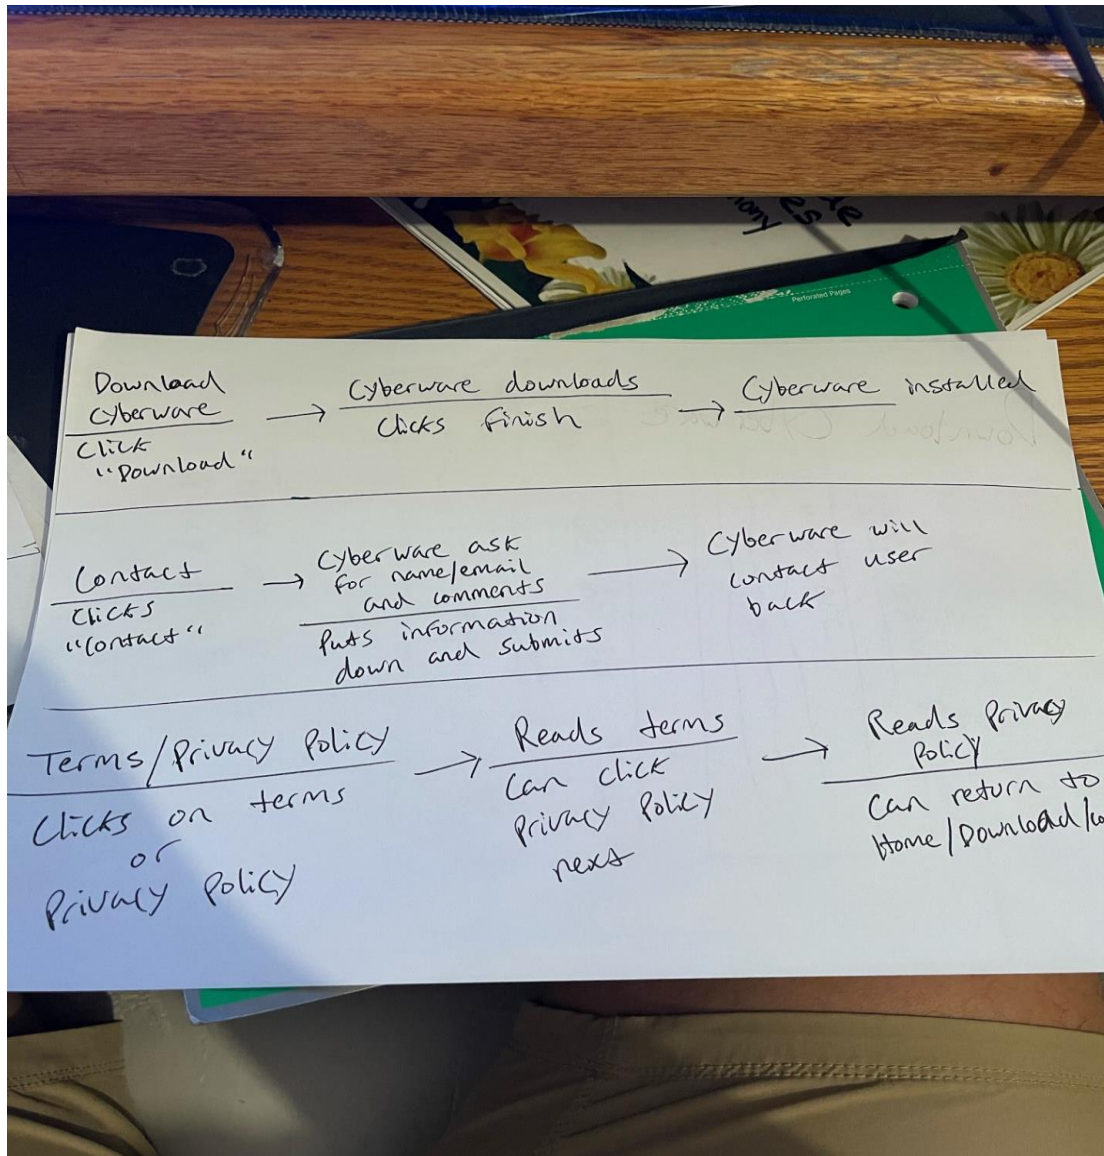 Perforated Pages
Download
Cyberware
Click
"Download"
Cyberware downloads
Clicks Finish
Cyberware installed
Contact
Clicks
"Contact"
Cyberware ask
for name/email
and comments
Puts information
down and submits
Cyberware will
contact user
back
Terms/Privacy Policy
Clicks on terms
or
Privacy Policy
Reads terms
Can click
Privacy Policy
next
Reads Privacy
Policy
Can return to
Home/Download/